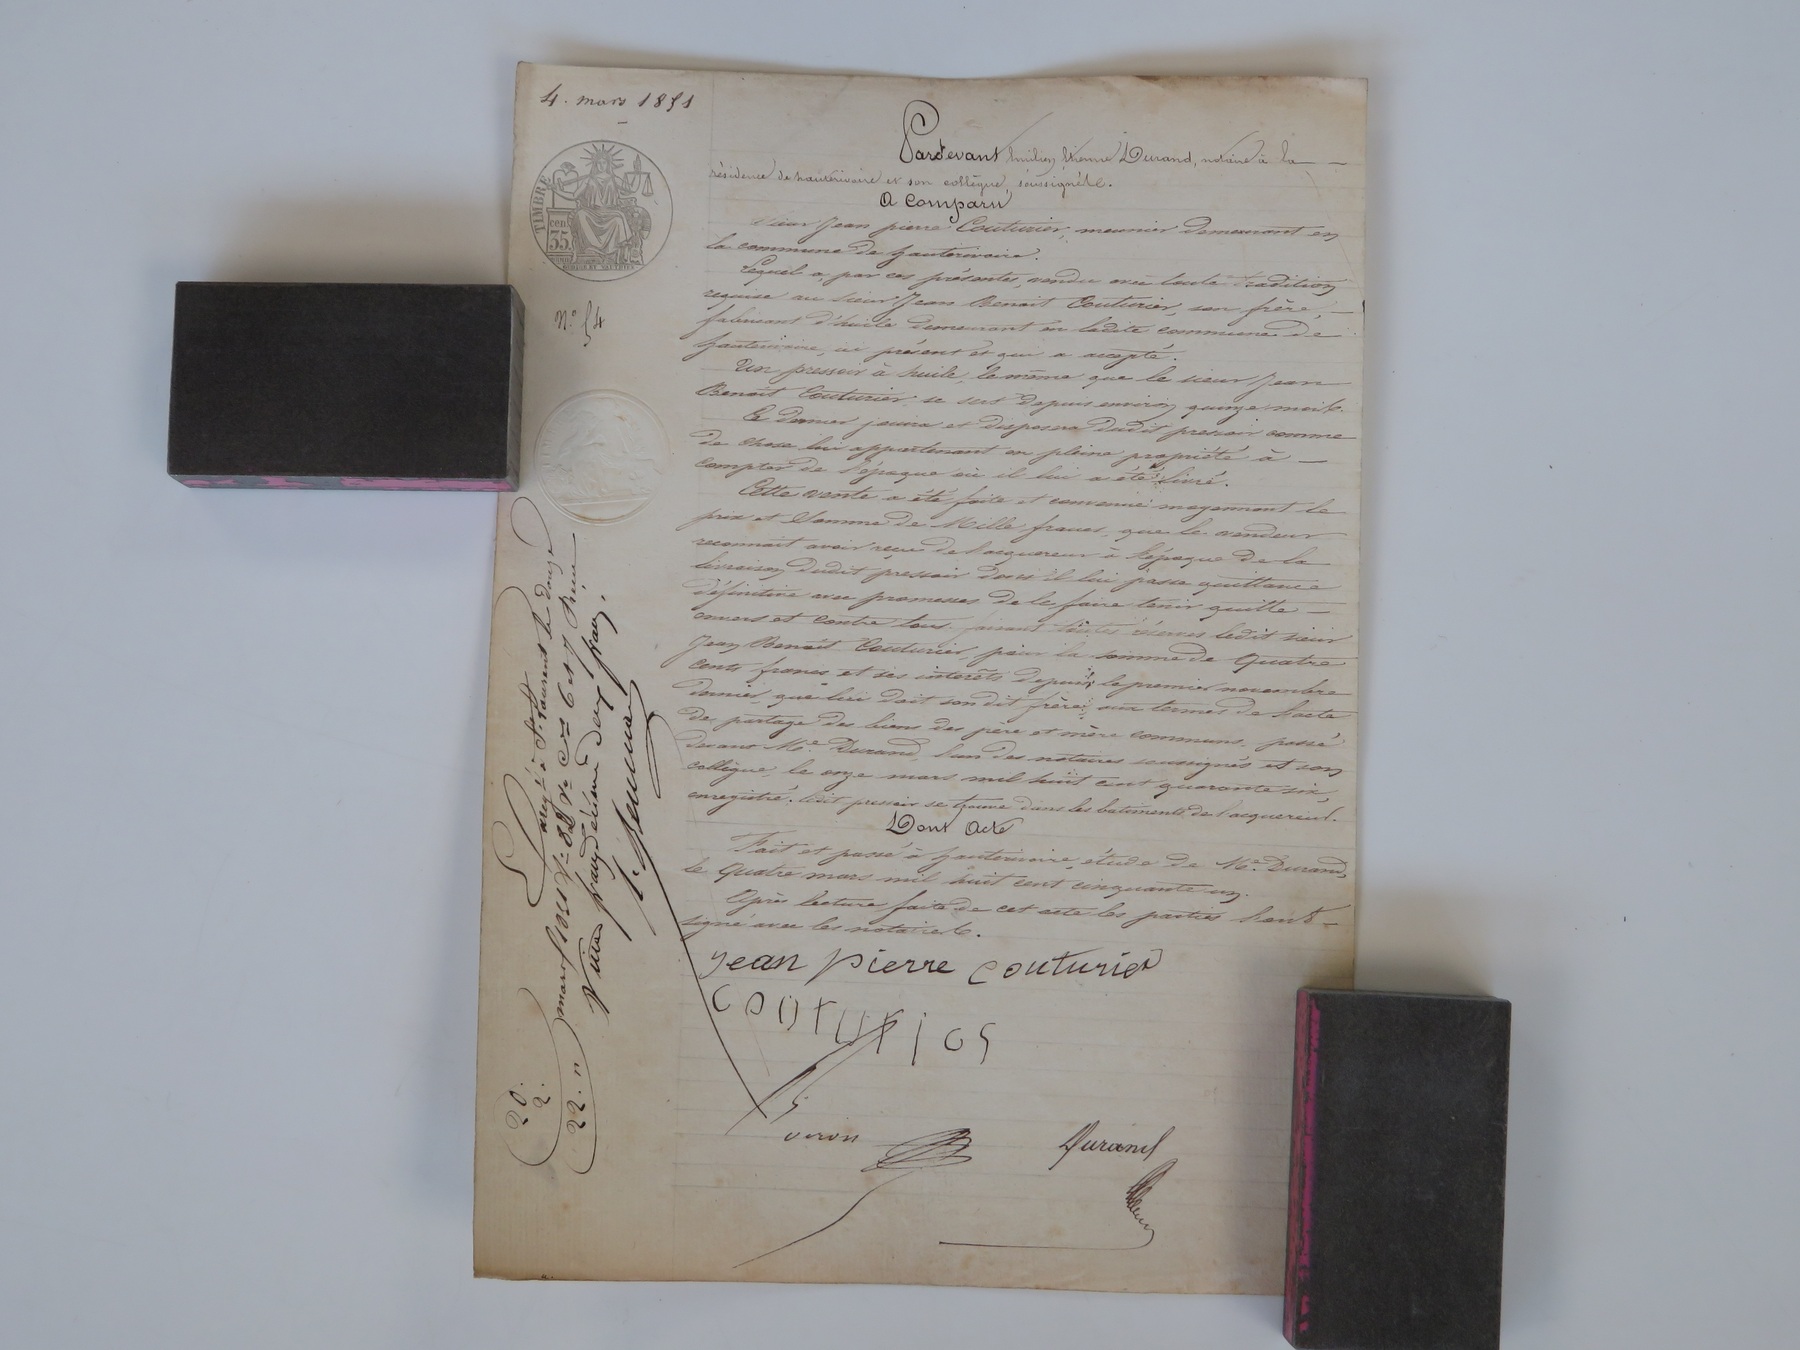 4. mars 1851
TIMBRE
cen.
35.
N.° 54
Pardevant Emilien Etienne Durand, notaire à la
résidence de hauterivoire et son collègue, soussignés.
A Comparu
Sieur Jean pierre Couturier, meunier demeurant en
la commune de hauterivoire.
Lequel a, par ces présentes, vendu avec toute tradition
requise au sieur Jean Benoit Couturier, son frère,
fabricant d'huile demeurant en ladite commune de
hauterivoire, ici présent et qui a accepté.
Un pressoir à huile, le même que le sieur Jean
Benoit Couturier se sert depuis environ quinze mois.
Ce dernier jouira et disposera dudit pressoir comme
de chose lui appartenant en pleine propriété à
compter de l'époque où il lui a été livré.
Cette vente a été faite et convenue moyennant le
prix et somme de Mille francs, que le vendeur
reconnait avoir reçu de l'acquereur à l'époque de la
livraison dudit pressoir dont il lui passe quittance
définitive avec promesses de le faire tenir quitte
envers et contre tous, faisant toutes réserves ledit sieur
Jean Benoit Couturier, pour la somme de Quatre
cents francs et ses intérêts depuis le premier novembre
dernier, que lui doit son dit frère, aux termes de l'acte
de partage des biens des père et mère communs, passé
devant Me. Durand, l'un des notaires soussignés et son
collègue, le onze mars mil huit cent quarante six,
enregistré. Ledit pressoir se trouve dans les batiments de l'acquereur.
Dont Acte
Fait et passé à hauterivoire, étude de Me. Durand,
le Quatre mars mil huit cent cinquante un.
Après lecture faite de cet acte les parties l'ont
signé avec les notaires.
jean pierre couturier
couturier
Durand
Enregté à St Laurent le douze
mars 1851
Vingt francs décime deux francs.
20.
2.
22. "